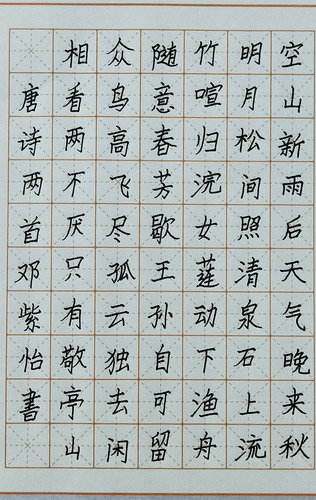 空山新雨后天气晚来秋
明月松间照清泉石上流
竹喧归浣女莲动下渔舟
随意春芳歇王孙自可留
众鸟高飞尽孤云独去闲
相看两不厌只有敬亭山
唐诗两首邓紫怡書